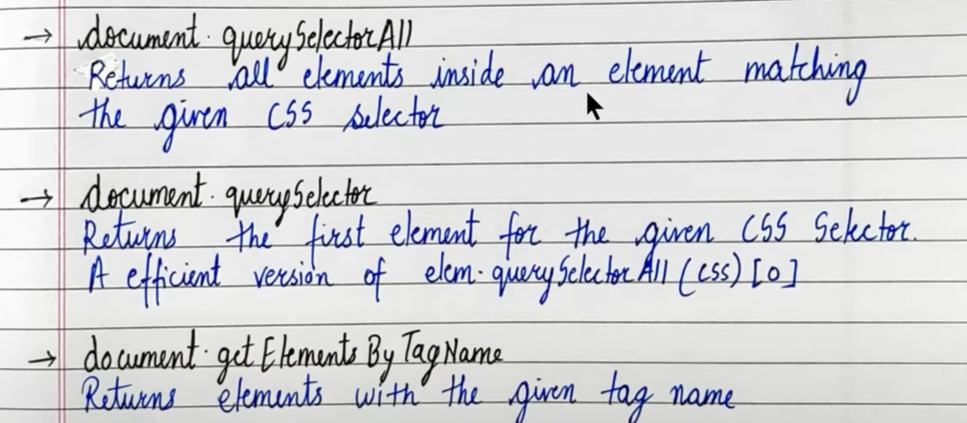 → document.querySelectorAll
Returns all elements inside an element matching
the given CSS selector
→ document.querySelector
Returns the first element for the given CSS Selector.
A efficient version of elem.querySelectorAll (css) [0]
→ document.getElementsByTagName
Returns elements with the given tag name